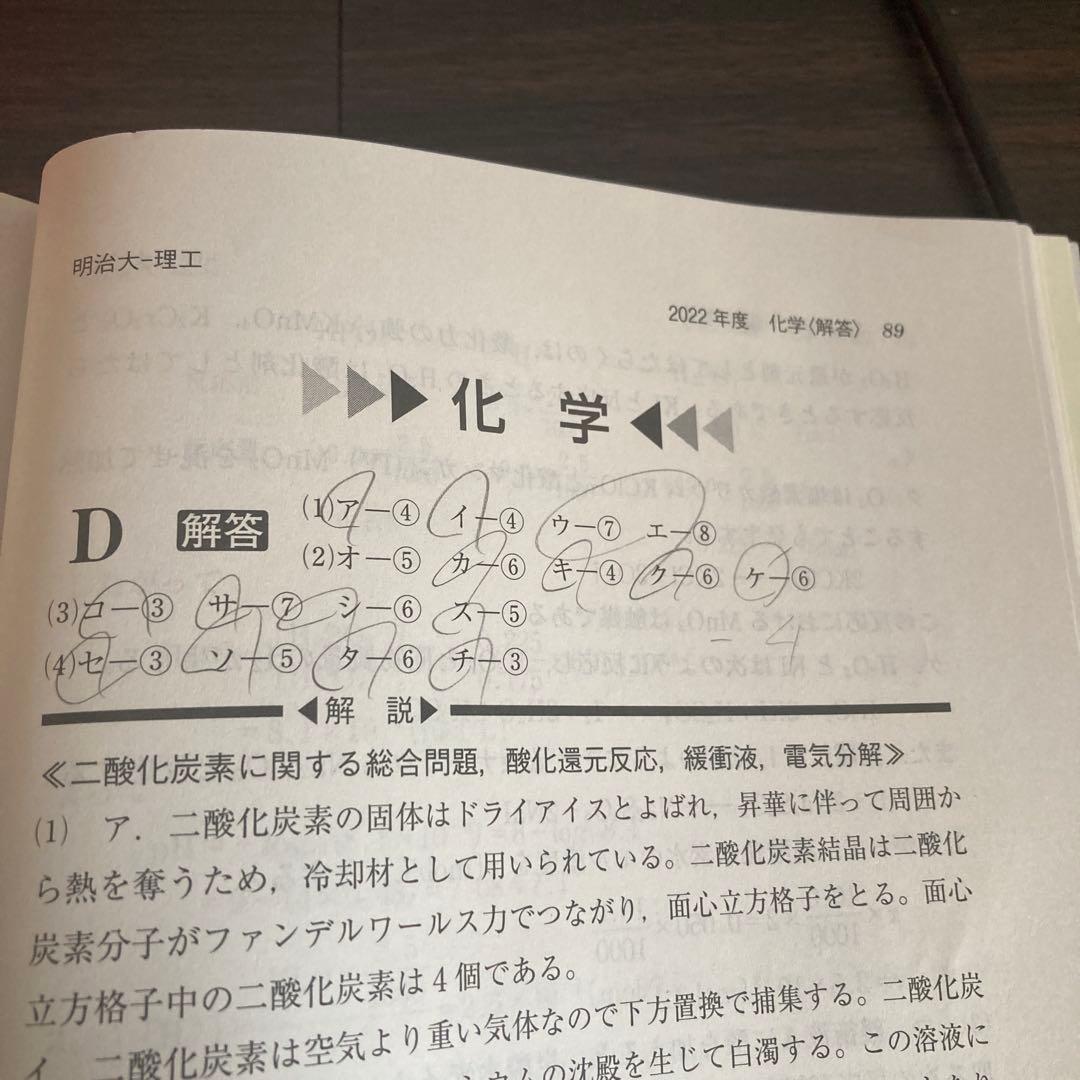 明治大-理工
2022年度 化学〈解答〉 89
化 学
D 解答 (1)ア—④ イ—④ ウ—⑦ エ—⑧
(2)オ—⑤ カ—⑥ キ—④ ク—⑥ ケ—⑥
(3)コ—③ サ—⑦ シ—⑥ ス—⑤
- 4
(4)セ—③ ソ—⑤ タ—⑥ チ—③
◀解 説▶
≪二酸化炭素に関する総合問題，酸化還元反応，緩衝液，電気分解≫
(1) ア．二酸化炭素の固体はドライアイスとよばれ，昇華に伴って周囲か
ら熱を奪うため，冷却材として用いられている。二酸化炭素結晶は二酸化
炭素分子がファンデルワールス力でつながり，面心立方格子をとる。面心
立方格子中の二酸化炭素は4個である。
イ．二酸化炭素は空気より重い気体なので下方置換で捕集する。二酸化炭
ウムの沈殿を生じて白濁する。この溶液に